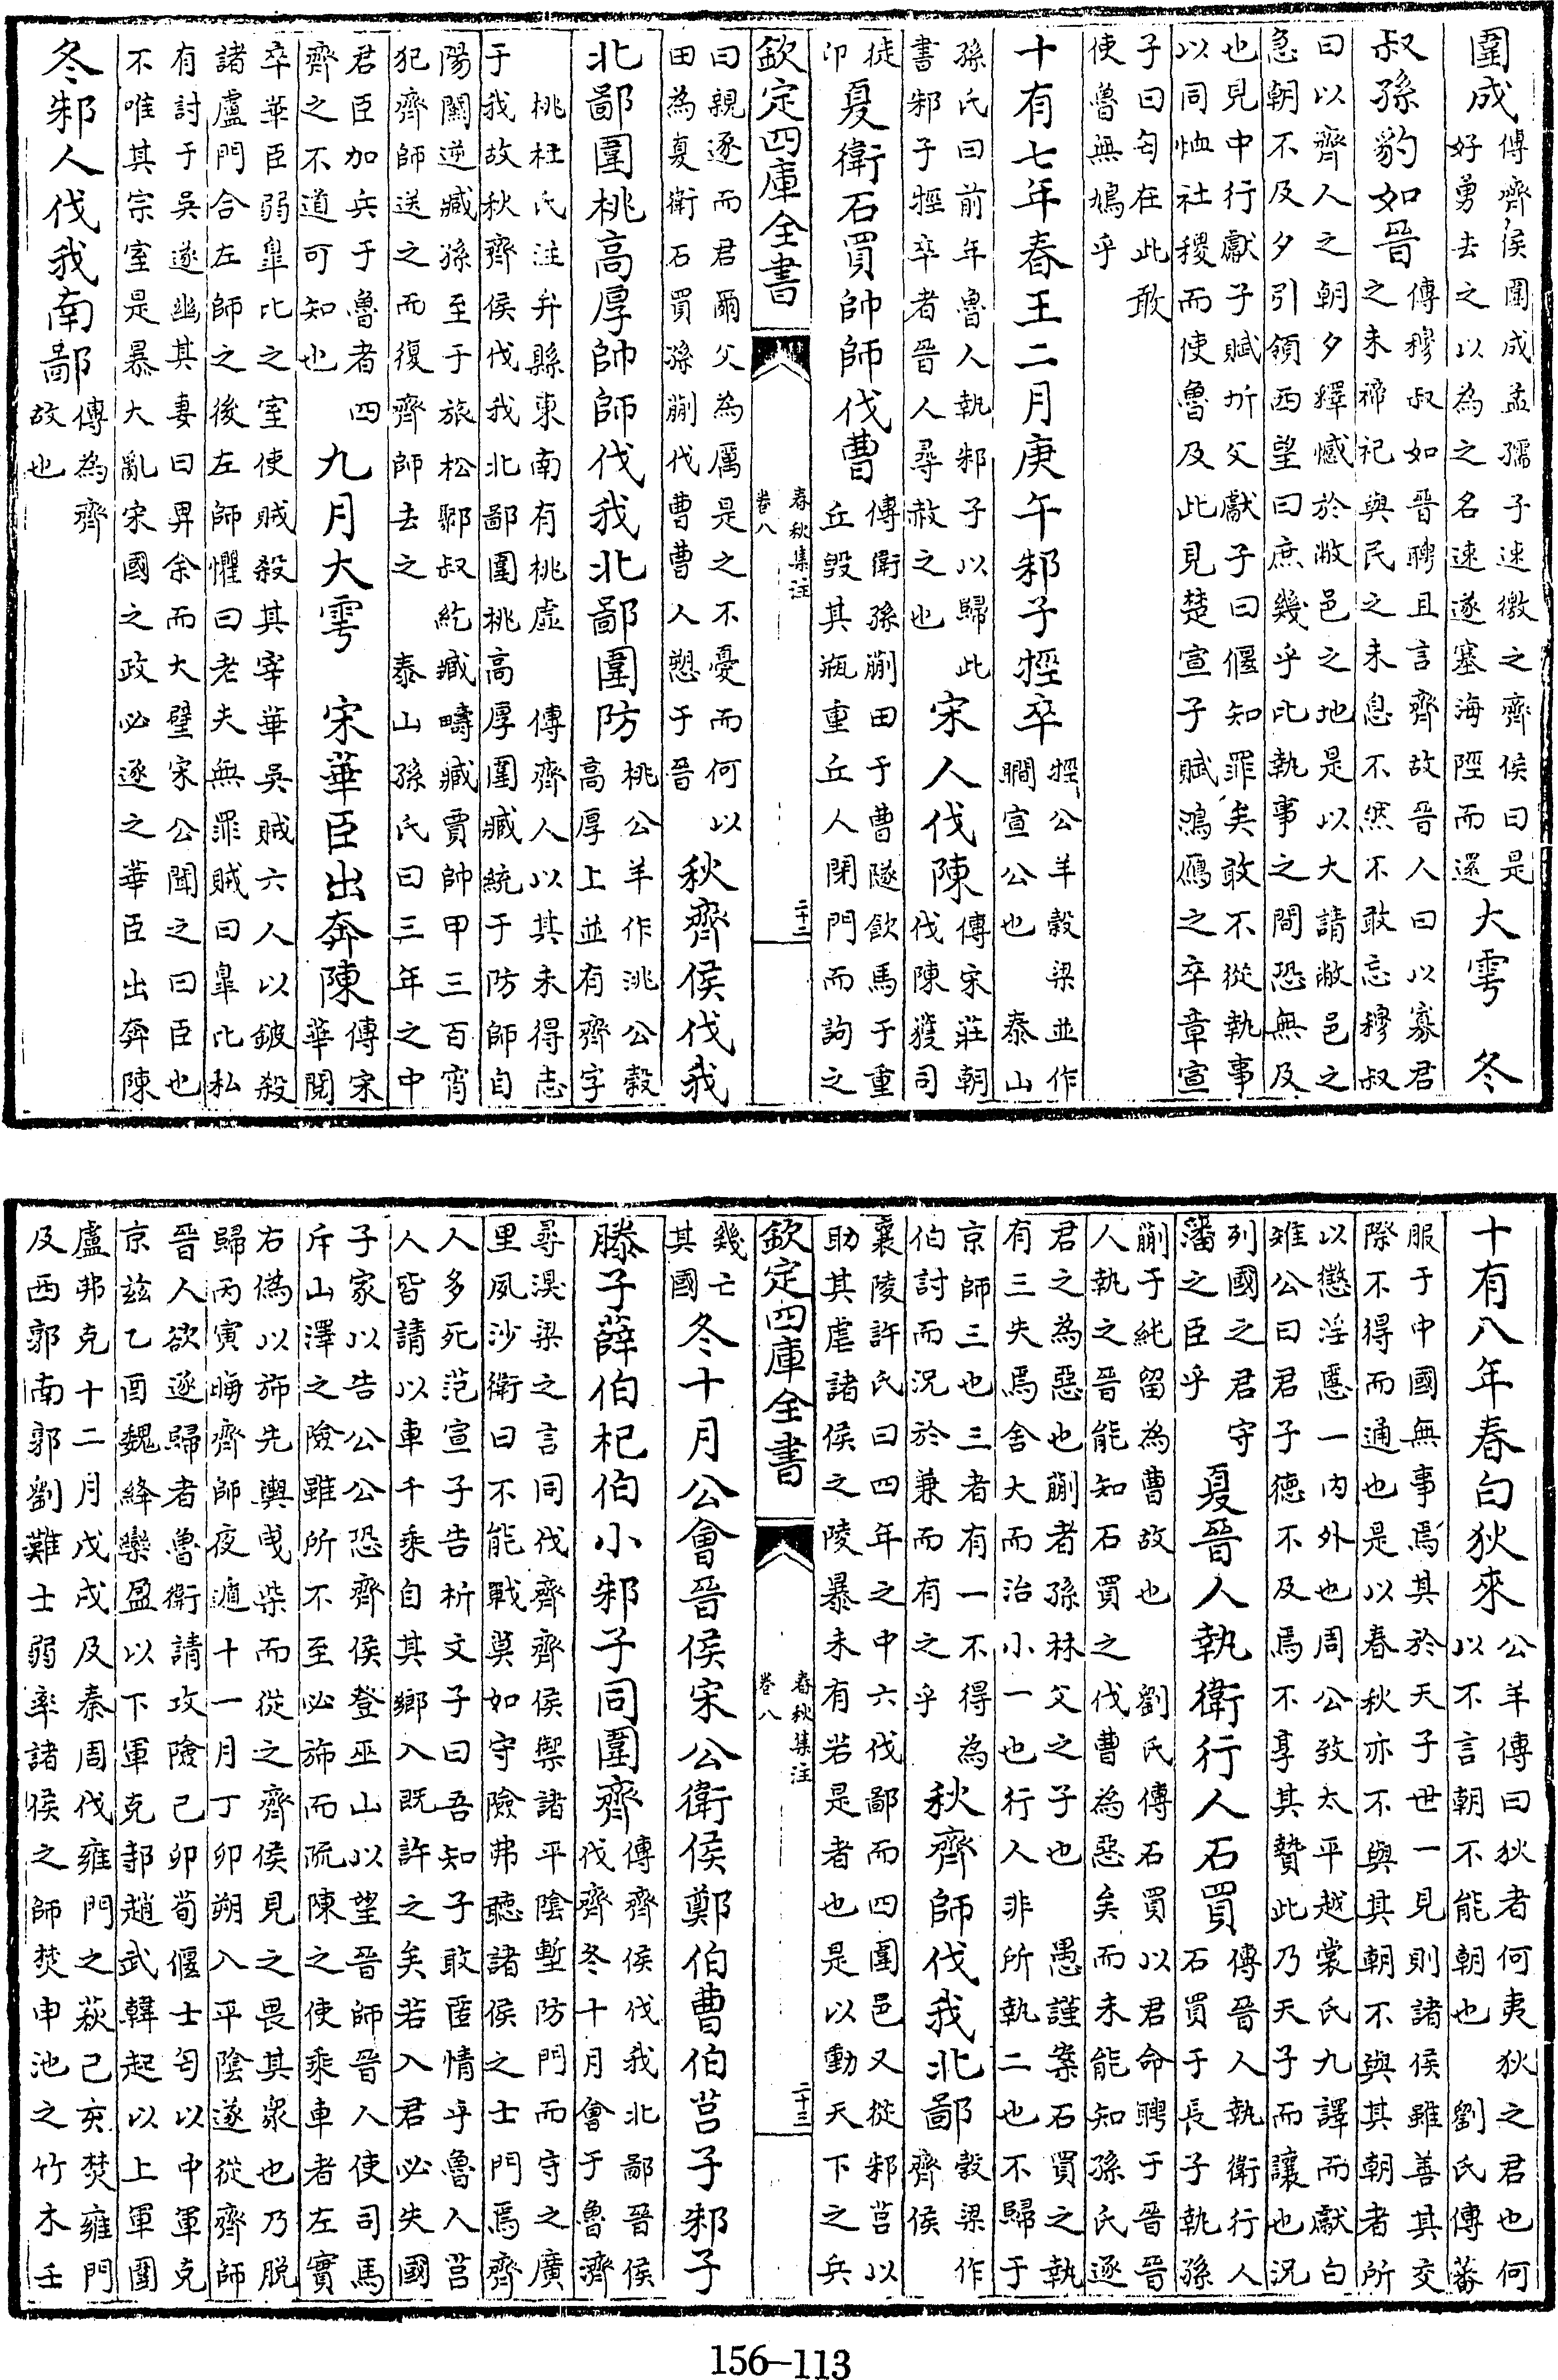 圍成傳齊侯圍成孟孺子速徼之齊侯曰是好勇去之以為之名速遂塞海陘而還大雩 冬
叔孫豹如晉傳穆叔如晉聘且言齊故晉人曰以寡君之未禘祀與民之未息不然不敢忘穆叔
曰以齊人之朝夕釋憾於敝邑之地是以大請敝邑之
急朝不及夕引領西望曰庶幾乎比執事之間恐無及
也見中行獻子賦圻父獻子曰偃知罪矣敢不從執事
以同恤社稷而使魯及此見楚宣子賦鴻鴈之卒章宣
子曰匄在此敢
使魯無鳩乎
十有七年春王二月庚午邾子牼卒牼公羊穀梁並作瞷宣公也 泰山
孫氏曰前年魯人執邾子以歸此書邾子牼卒者晉人尋赦之也宋人伐陳傳宋莊朝伐陳獲司
徒卬夏衛石買帥師伐曹傳衛孫蒯田于曹隧飲馬于重丘毁其瓶重丘人閉門而訽之
欽定四庫全書 春秋集注 卷八 二十三
曰親逐而君爾父為厲是之不憂而何以田為夏衛石買孫蒯伐曹曹人愬于晉秋齊侯伐我
北鄙圍桃高厚帥師伐我北鄙圍防桃公羊作洮公穀高厚上並有齊字
桃杜氏注弁縣東南有桃虛 傳齊人以其未得志
于我故秋齊侯伐我北鄙圍桃高厚圍臧統于防師自
陽關逆臧孫至于旅松郰叔紇臧疇臧賈帥甲三百宵
犯齊師送之而復齊師去之 泰山孫氏曰三年之中
君臣加兵于魯者四齊之不道可知也九月大雩 宋華臣出奔陳傳宋華閱
卒華臣弱臯比之室使賊殺其宰華吳賊六人以鈹殺
諸盧門合左師之後左師懼曰老夫無罪賊曰臯比私
有討于吳遂幽其妻曰畀余而大璧宋公聞之曰臣也
不唯其宗室是暴大亂宋國之政必逐之華臣出奔陳
冬邾人伐我南鄙傳為齊故也
十有八年春白狄來公羊傳曰狄者何夷狄之君也何以不言朝不能朝也 劉氏傳蕃
服于中國無事焉其於天子世一見則諸侯雖善其交
際不得而通也是以春秋亦不與其朝不與其朝者所
以懲淫慝一內外也周公致太平越裳氏九譯而獻白
雉公曰君子德不及焉不享其贄此乃天子而讓也況
列國之君守藩之臣乎夏晉人執衛行人石買傳晉人執衛行人石買于長子執孫
蒯于純留為曹故也 劉氏傳石買以君命聘于晉晉
人執之晉能知石買之伐曹為惡矣而未能知孫氏逐
君之為惡也蒯者孫林父之子也 愚謹案石買之執
有三失焉舍大而治小一也行人非所執二也不歸于
京師三也三者有一不得為伯討而況於兼而有之乎秋齊師伐我北鄙穀梁作齊侯
襄陵許氏曰四年之中六伐鄙而四圍邑又從邾莒以
助其虐諸侯之陵暴未有若是者也是以動天下之兵
欽定四庫全書 春秋集注 卷八 二十三
幾亡其國冬十月公會晉侯宋公衛侯鄭伯曹伯莒子邾子
滕子薛伯杞伯小邾子同圍齊傳齊侯伐我北鄙晉侯伐齊冬十月會于魯濟
尋湨梁之言同伐齊齊侯禦諸平陰塹防門而守之廣
里夙沙衛曰不能戰莫如守險弗聽諸侯之士門焉齊
人多死范宣子告析文子曰吾知子敢匿情乎魯人莒
人皆請以車千乘自其鄉入既許之矣若入君必失國
子家以告公公恐齊侯登巫山以望晉師晉人使司馬
斥山澤之險雖所不至必旆而疏陳之使乘車者左實
右偽以旆先輿曳柴而從之齊侯見之畏其衆也乃脫
歸丙寅晦齊師夜遁十一月丁卯朔入平陰遂從齊師
晉人欲逐歸者魯衛請攻險己卯荀偃士匄以中軍克
京茲乙酉魏絳欒盈以下軍克邿趙武韓起以上軍圍
盧弗克十二月戊戌及秦周伐雍門之萩己亥焚雍門
及西郭南郭劉難士弱率諸侯之師焚申池之竹木壬
156-113